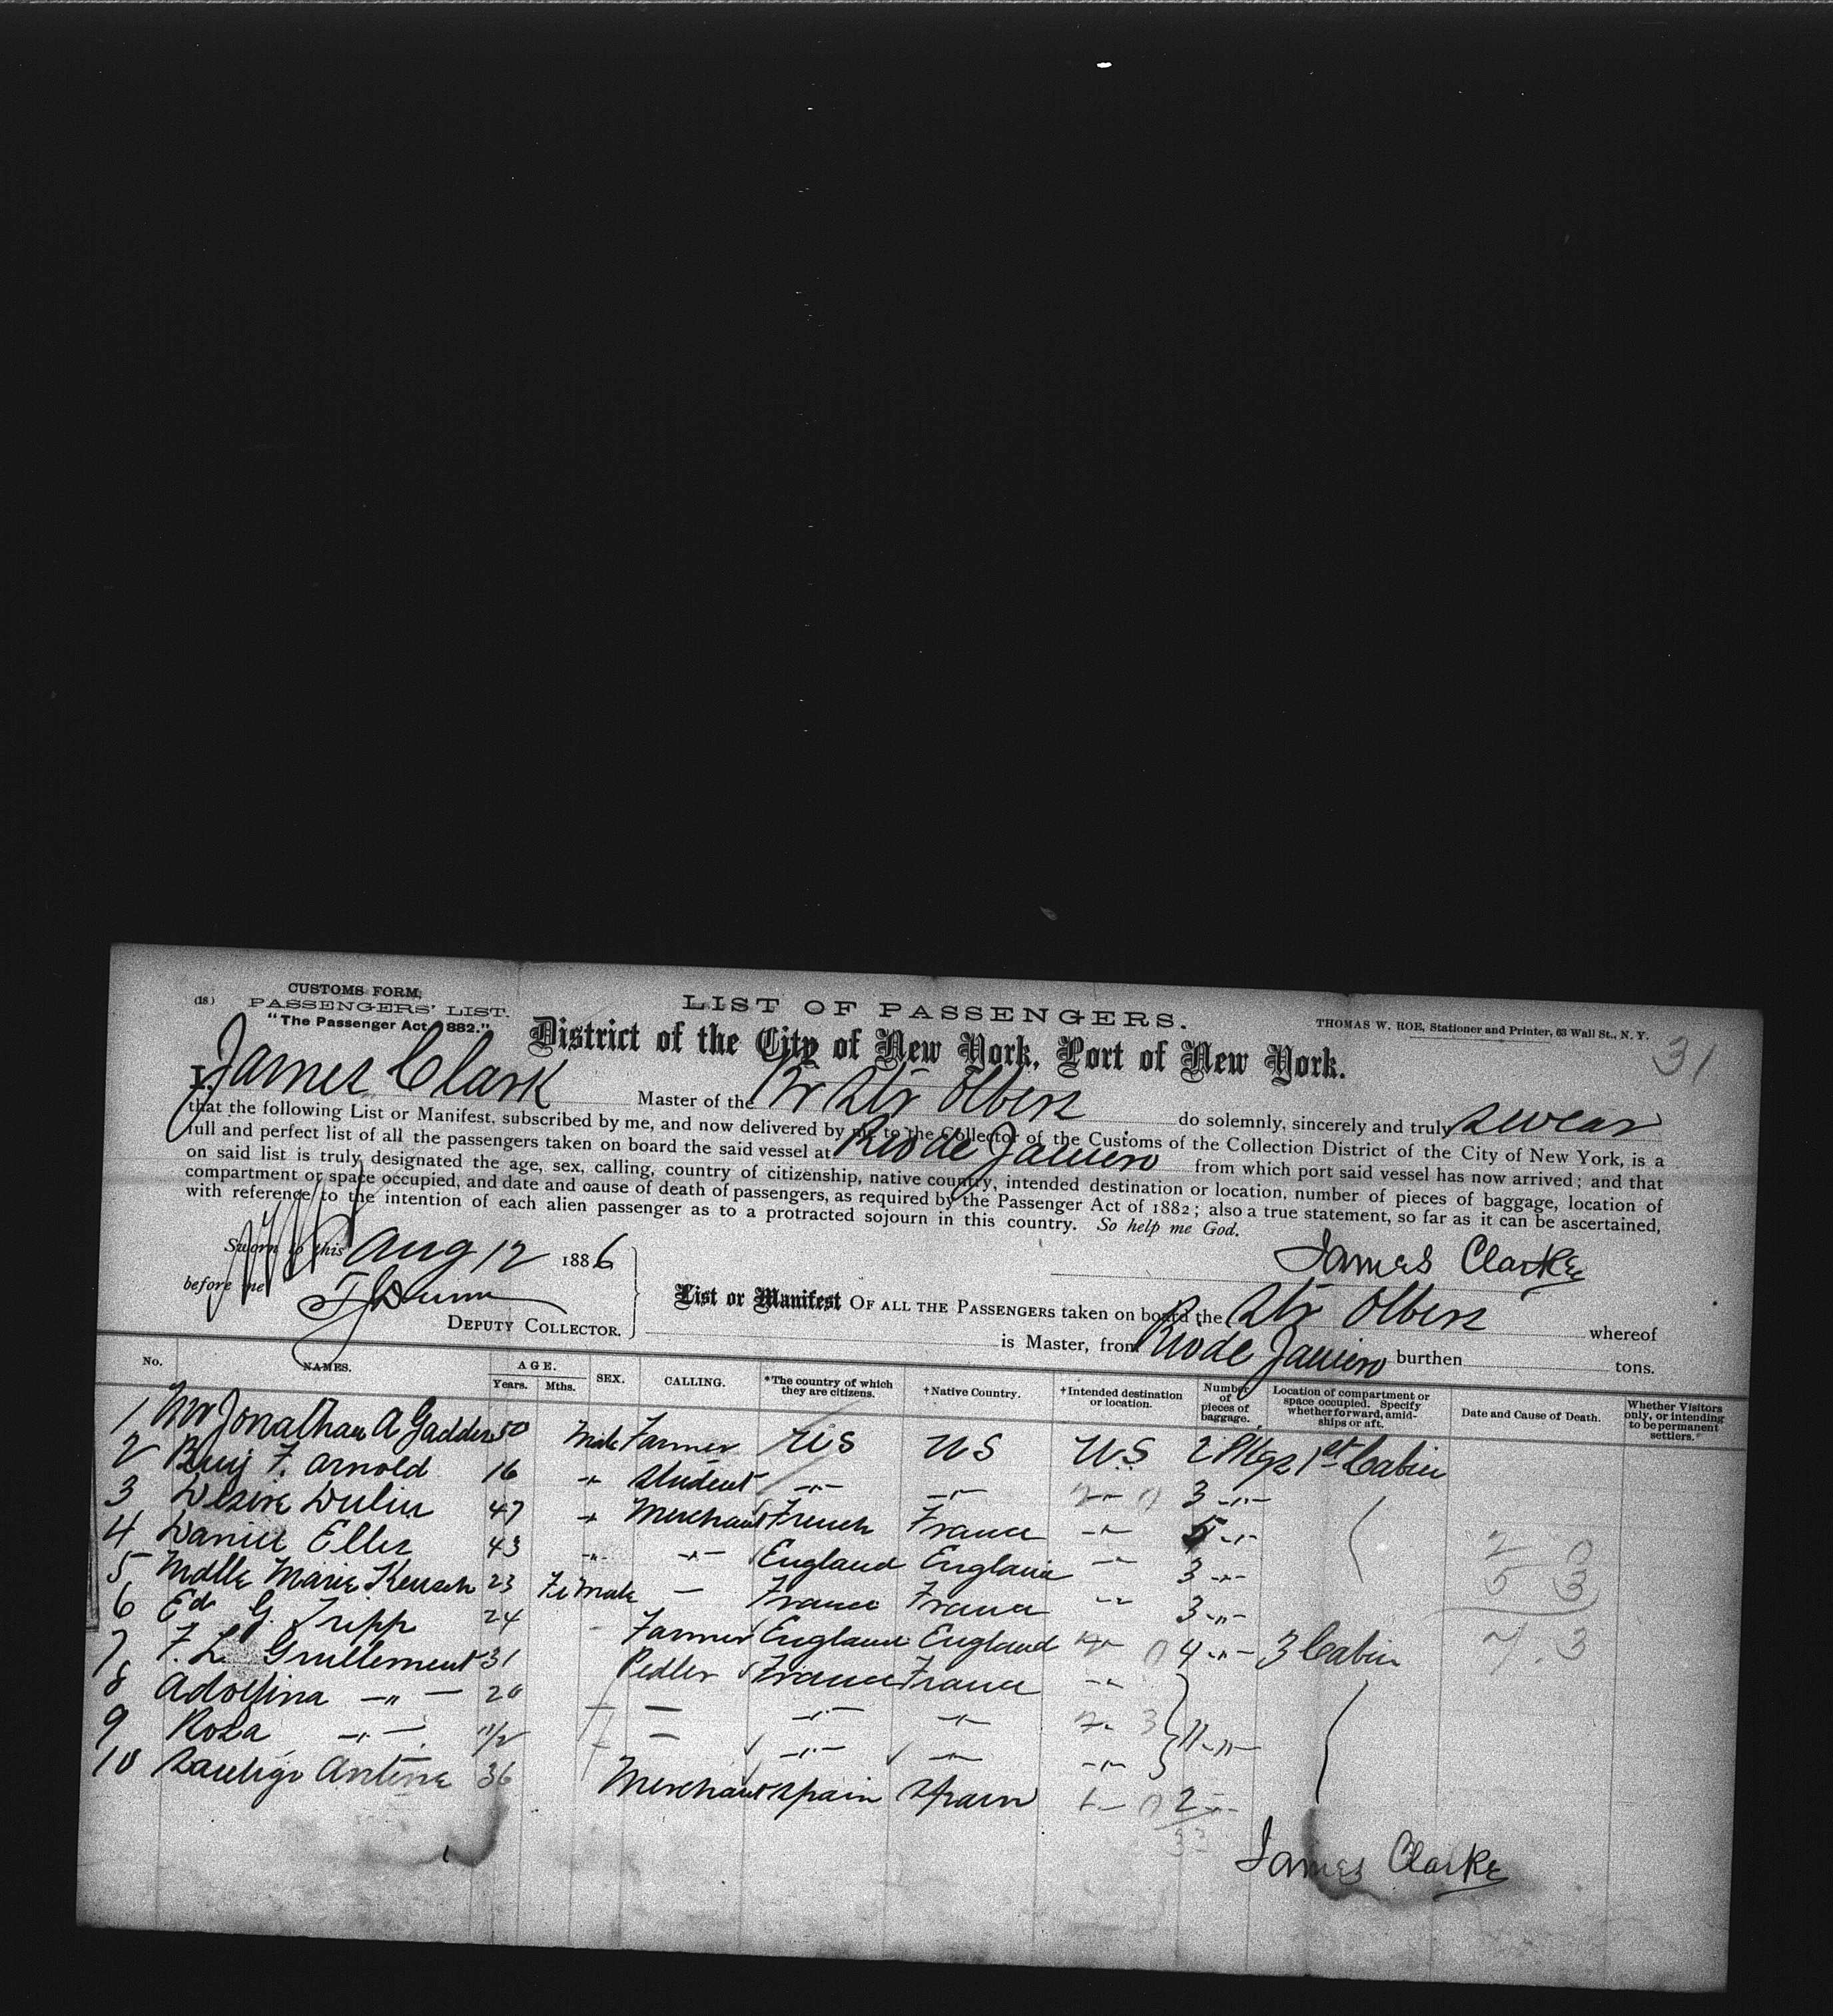 CUSTOMS FORM,
(18) PASSENGERS' LIST.
"The Passenger Act, 1882."
LIST OF PASSENGERS.
THOMAS W. ROE, Stationer and Printer, 63 Wall St., N. Y.
District of the City of New York, Port of New York.
31
I, James Clark Master of the Br Str Olbers do solemnly, sincerely and truly swear
that the following List or Manifest, subscribed by me, and now delivered by me to the Collector of the Customs of the Collection District of the City of New York, is a
full and perfect list of all the passengers taken on board the said vessel at Rio de Janiero from which port said vessel has now arrived; and that
on said list is truly designated the age, sex, calling, country of citizenship, native country, intended destination or location, number of pieces of baggage, location of
compartment or space occupied, and date and cause of death of passengers, as required by the Passenger Act of 1882; also a true statement, so far as it can be ascertained,
with reference to the intention of each alien passenger as to a protracted sojourn in this country. So help me God.
Sworn to this Aug 12 1886
James Clarke
before me
DEPUTY COLLECTOR.
List or Manifest OF ALL THE PASSENGERS taken on board the Str Olbers whereof
is Master, from Rio de Janiero burthen tons.
No. NAMES. AGE. Years. Mths. SEX. CALLING. *The country of which they are citizens. †Native Country. †Intended destination or location. Number of pieces of baggage. Location of compartment or space occupied. Specify whether forward, amidships or aft. Date and Cause of Death. Whether Visitors only, or intending to be permanent settlers.
1 Mr Jonathan A Gadden 50 Male Farmer US US US 2 Pkgs 1st Cabin
2 Benj F. Arnold 16 -"- Student -"- -"- -"- 3 -"-
3 Desire Dulin 47 -"- Merchant French France -"- 5 -"-
4 Daniel Elles 43 -"- -"- England England -"- 3 -"-
5 Mdlle Marie Keusch 23 Female — France France -"- 3 -"-
6 Ed G. Tripp 24 Farmer England England -"- 4 -"- 3 Cabin
7 F. L. Guillement 31 Pedler France France -"-
8 Adolfina -"- 20 — -"- -"- -"- 11 -"-
9 Rosa -"- 11/2 — -"- -"- -"-
10 Antine 36 Merchant Spain Spain 2 -"-
2 0
5 3
7. 3
James Clarke